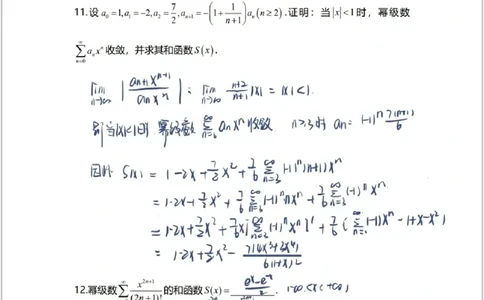 11.设 a₀=1,a₁=-2,a₂=7/2,aₙ₊₁=-(1+1/(n+1))aₙ(n≥2).证明：当 |x|<1时，幂级数
∑(n=0→∞) aₙxⁿ 收敛，并求其和函数S(x).
lim(n→∞) |aₙ₊₁xⁿ⁺¹/aₙxⁿ| = lim(n→∞) (n+2)/(n+1) |x| = |x|<1.
则当|x|<1时 幂级数 ∑ aₙxⁿ 收敛 n≥3时 aₙ= (-1)ⁿ 7(n+1)/6
因此 S(x) = 1-2x+7/2x²+7/6 ∑(n=3→∞) (-1)ⁿ(n+1)xⁿ
= 1-2x+7/2x²+7/6 ∑(n=3→∞) (-1)ⁿnxⁿ+7/6 ∑(n=3→∞) (-1)ⁿxⁿ
= 1-2x+7/2x²+7/6x[∑(-1)ⁿxⁿ]'+7/6(∑(-1)ⁿxⁿ-1+x-x²)
= 1-2x+7/2x²-7(4x³+3x⁴)/6(1+x)²
12.幂级数∑ x²ⁿ⁺¹/(2n+1)! 的和函数S(x)= (eˣ-e⁻ˣ)/2 . (-∞<x<+∞)